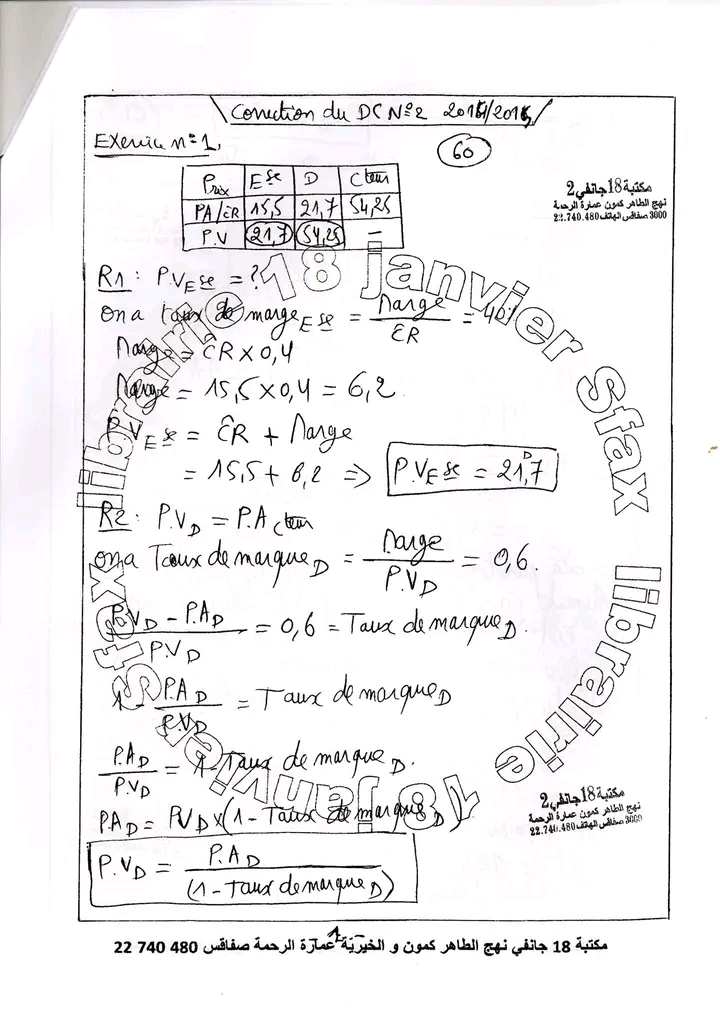 Correction du DC N°2 2015/2016
Exercice n°1
60
Prix Ese D Cteur
PA/CR 15,5 21,7 54,25
P.V 21,7 54,25 –
مكتبة 18 جانفي 2
نهج الطاهر كمون عمارة الرحمة
3000 صفاقس الهاتف 22.740.480
librairie 18 janvier Sfax
R1 : P.V Ese = ?
on a taux de marge Ese = Marge / CR = 40%
Marge = CR × 0,4
Marge = 15,5 × 0,4 = 6,2
P.V Ese = CR + Marge
= 15,5 + 6,2 => P.V Ese = 21,7 D
R2 : P.V D = P.A Cteur
on a Taux de marque D = Marge / P.V D = 0,6.
P.V D – P.A D / P.V D = 0,6 = Taux de marque D.
1 – P.A D / P.V D = Taux de marque D
P.A D / P.V D = 1 – Taux de marque D.
P.A D = P.V D × (1 – Taux de marque D)
P.V D = P.A D / (1 – Taux de marque D)
librairie 18 janvier Sfax
مكتبة 18 جانفي 2
نهج الطاهر كمون عمارة الرحمة
3000 صفاقس الهاتف 22.740.480
1
مكتبة 18 جانفي نهج الطاهر كمون و الخيريّة عمارة الرحمة صفاقس 480 740 22